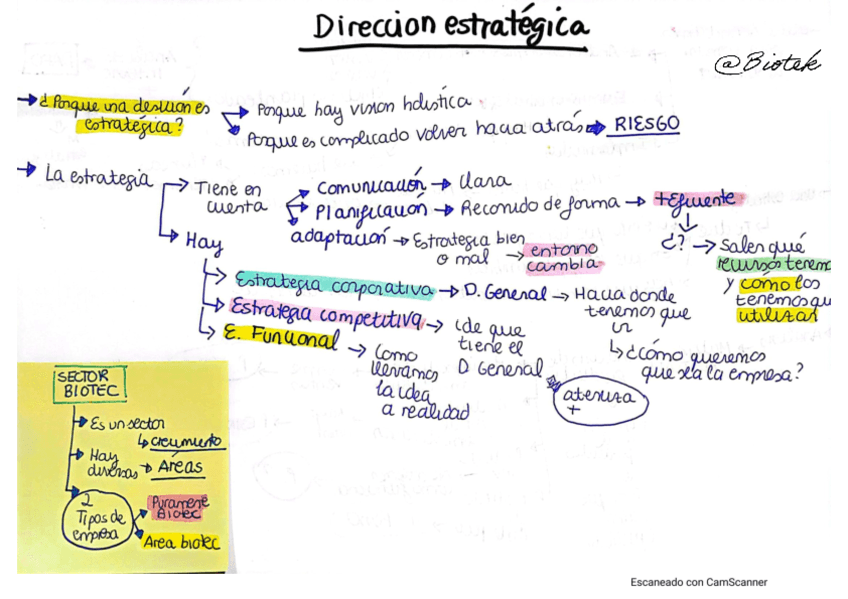 Direccion estratégica
@Biotek
¿Porque una desición es
estratégica?
Porque hay vision holística
Porque es complicado volver hacia atrás → RIESGO
La estrategia
Tiene en
cuenta
Comunicación → Clara
Planificación → Recorrido de forma → +Eficiente
adaptación → Estrategia bien
o mal → entorno
cambia
¿? → Saber qué
recursos tenem
y cómo los
tenemos qu
utilizar
Hay
Estrategia corporativa → D. General → Hacia donde
tenemos que
ir
¿Cómo queremos
que sea la empresa?
Estrategia competitiva → Idea que
tiene el
D General
aterriza
+
E. Funcional → Como
llevamos
la idea
a realidad
SECTOR
BIOTEC
Es un sector
↳ crecimiento
Hay
diversas → Áreas
2
Tipos de
empresa
Puramente
Biotec
Area biotec
Escaneado con CamScanner